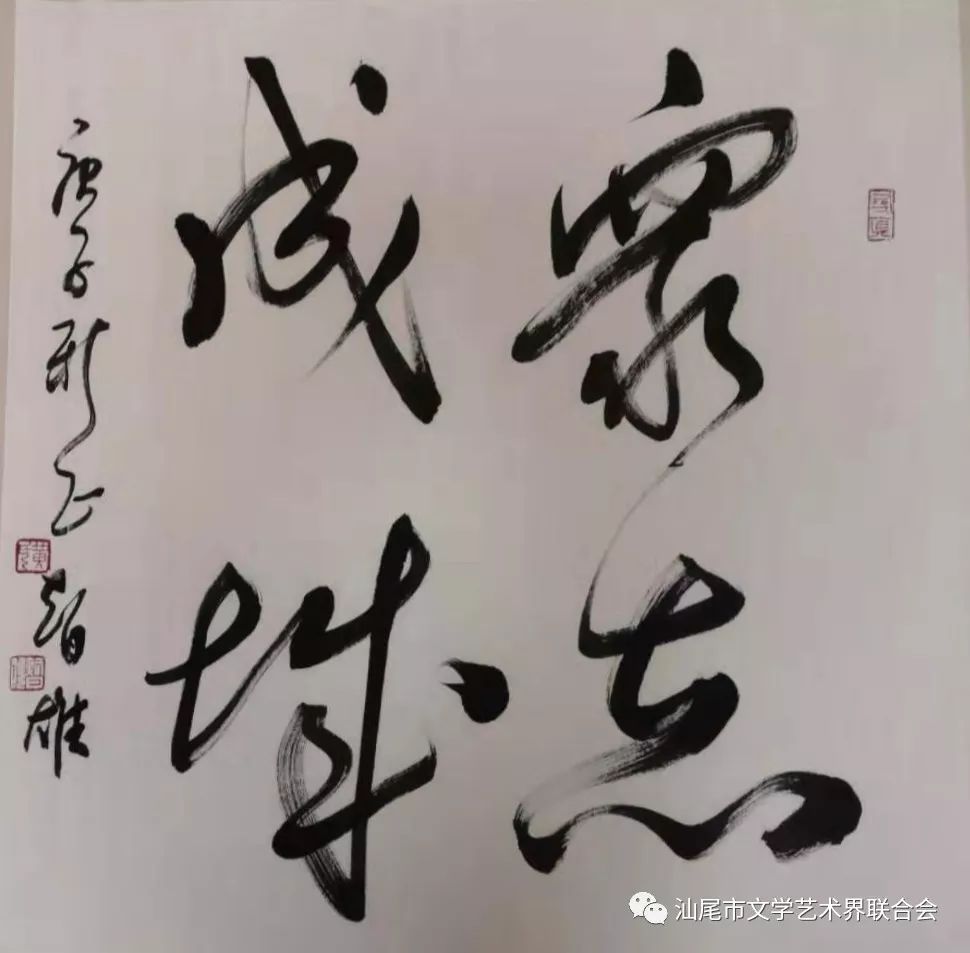 眾志
成城
庚子新正
智雄
汕尾市文学艺术界联合会